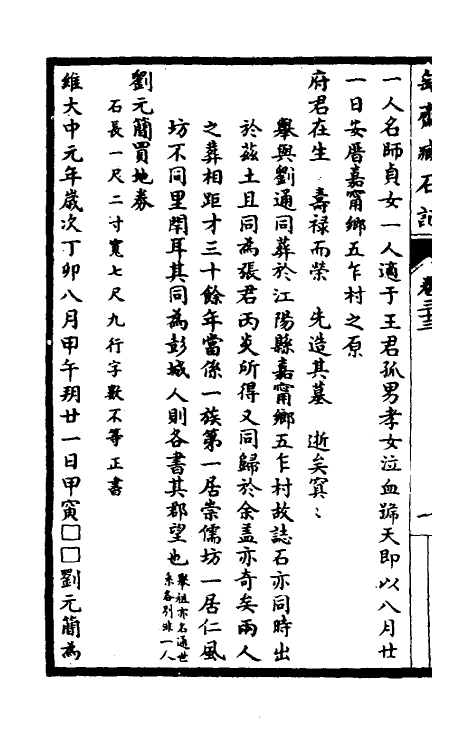 匋齋臧石記 卷三十三 一
一人名師貞女一人適于王君孤男孝女泣血號天即以八月廿
一日安厝嘉甯鄉五乍村之原
府君在生 壽祿而榮 先造其墓 逝矣冥〻
擧與劉通同葬於江陽縣嘉甯鄉五乍村故誌石亦同時出
於茲土且同為張君丙炎所得又同歸於余盖亦奇矣兩人
之葬相距才三十餘年當係一族第一居崇儒坊一居仁風
坊不同里閈耳其同為彭城人則各書其郡望也擧祖亦名通世系各別非一人
劉元簡買地券
石長一尺二寸寬七尺九行字數不等正書
維大中元年歲次丁卯八月甲午朔廿一日甲寅□□劉元簡為